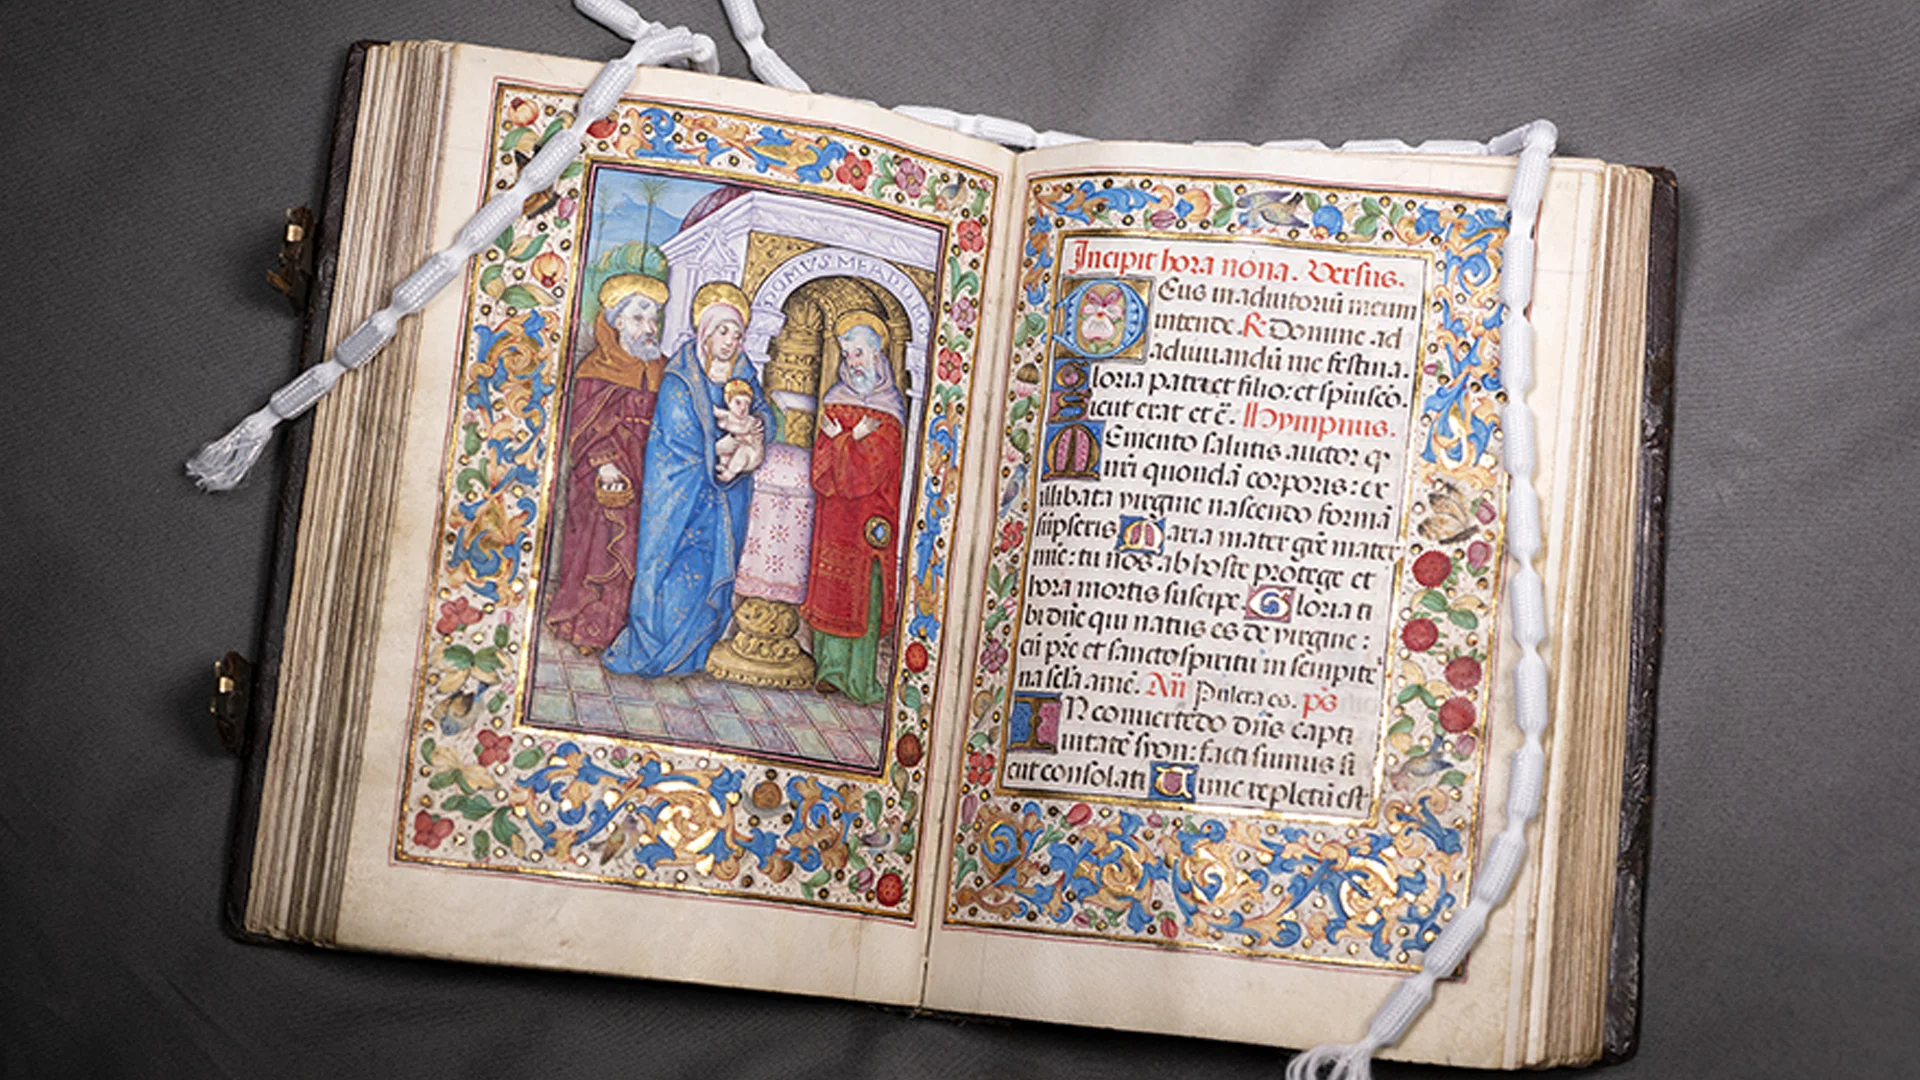 DOMUS MEA DOMUS
Incipit hora nona. Versus.
DEus in adiutoriū meum
intende. R Domine ad
adiuuandū me festina.
Gloria patri et filio: et spiui scō.
Sicut erat et c̄. Hympnus.
MEmento salutis auctor q
nr̄i quondā corporis: ex
illibata virgine nascendo formā
sūpseris. Maria mater gr̄e mater
mie: tu nos ab hoste protege et
hora mortis suscipe. Gloria ti
bi dn̄e qui natus es de virgine:
cū pr̄e et sancto spiritu in sempiter
na scl̄a. amē. Añ Pulcra es. ps̄
IN conuertēdo dn̄s capti
uitatē syon: facti sumus si
cut consolati Tunc repletū est